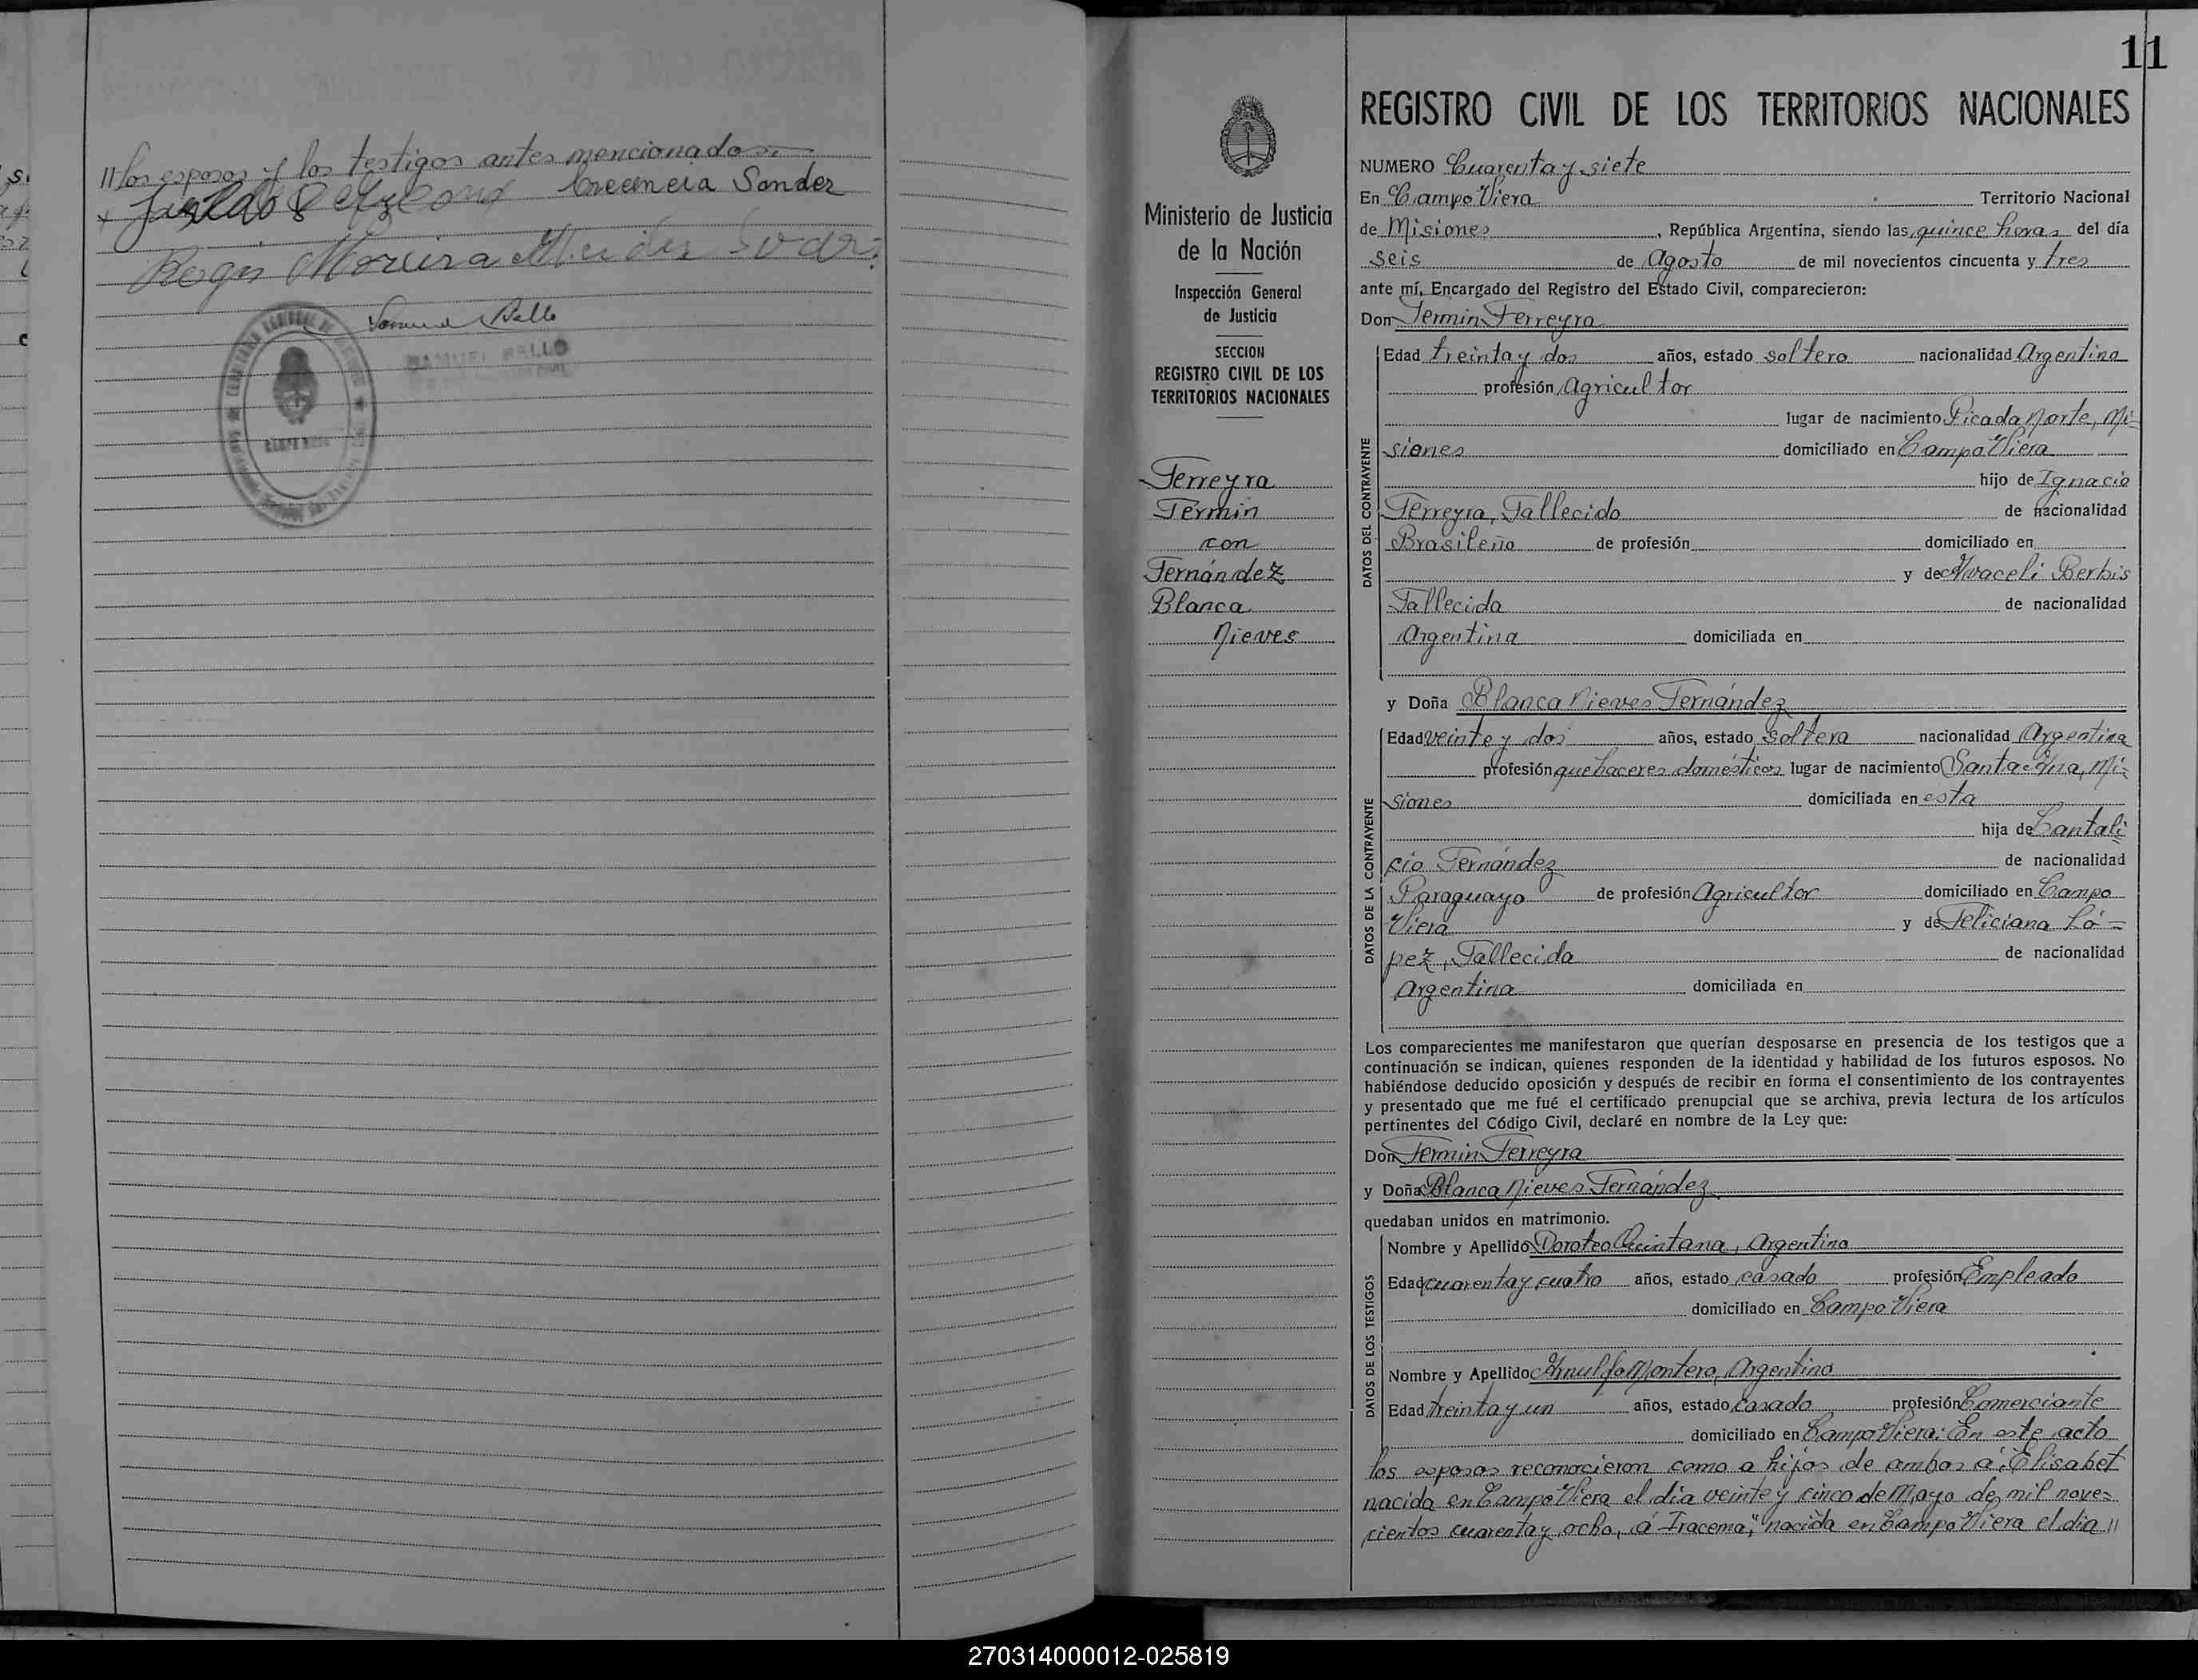 // los esposos y los testigos antes mencionados.
Crecencia Sander
Regis Moreira
Samuel Ballo
SAMUEL BALLO
CAMPO VIERA
11
REGISTRO CIVIL DE LOS TERRITORIOS NACIONALES
Ministerio de Justicia
de la Nación
Inspección General
de Justicia
SECCION
REGISTRO CIVIL DE LOS
TERRITORIOS NACIONALES
Ferreyra
Fermin
con
Fernández
Blanca
Nieves
NUMERO Cuarenta y siete
En Campo Viera Territorio Nacional
de Misiones, República Argentina, siendo las quince horas del día
seis de Agosto de mil novecientos cincuenta y tres
ante mí, Encargado del Registro del Estado Civil, comparecieron:
Don Fermin Ferreyra
DATOS DEL CONTRAYENTE
Edad treinta y dos años, estado soltero nacionalidad Argentino
profesión Agricultor
lugar de nacimiento Picada Norte, Mi-
siones domiciliado en Campo Viera
hijo de Ignacio
Ferreyra, Fallecido de nacionalidad
Brasileño de profesión domiciliado en
y de Araceli Berbis
Fallecida de nacionalidad
Argentina domiciliada en
y Doña Blanca Nieves Fernández
DATOS DE LA CONTRAYENTE
Edad veinte y dos años, estado soltera nacionalidad Argentina
profesión quehaceres domésticos lugar de nacimiento Santa Ana, Mi-
siones domiciliada en esta
hija de Cantali
cio Fernández de nacionalidad
Paraguayo de profesión Agricultor domiciliado en Campo
Viera y de Feliciana Ló=
pez, Fallecida de nacionalidad
Argentina domiciliada en
Los comparecientes me manifestaron que querían desposarse en presencia de los testigos que a
continuación se indican, quienes responden de la identidad y habilidad de los futuros esposos. No
habiéndose deducido oposición y después de recibir en forma el consentimiento de los contrayentes
y presentado que me fué el certificado prenupcial que se archiva, previa lectura de los artículos
pertinentes del Código Civil, declaré en nombre de la Ley que:
Don Fermin Ferreyra
y Doña Blanca Nieves Fernández
quedaban unidos en matrimonio.
DATOS DE LOS TESTIGOS
Nombre y Apellido Doroteo Quintana, Argentino
Edad cuarenta y cuatro años, estado casado profesión Empleado
domiciliado en Campo Viera
Nombre y Apellido Arnulfo Montero, Argentino
Edad treinta y un años, estado casado profesión Comerciante
domiciliado en Campo Viera: En este acto
los esposos reconocieron como a hijos de ambos á: Elisabet
nacida en Campo Viera el dia veinte y cinco de Mayo de mil nove=
cientos cuarenta y ocho, á "Iracema," nacida en Campo Viera el dia //
270314000012-025819